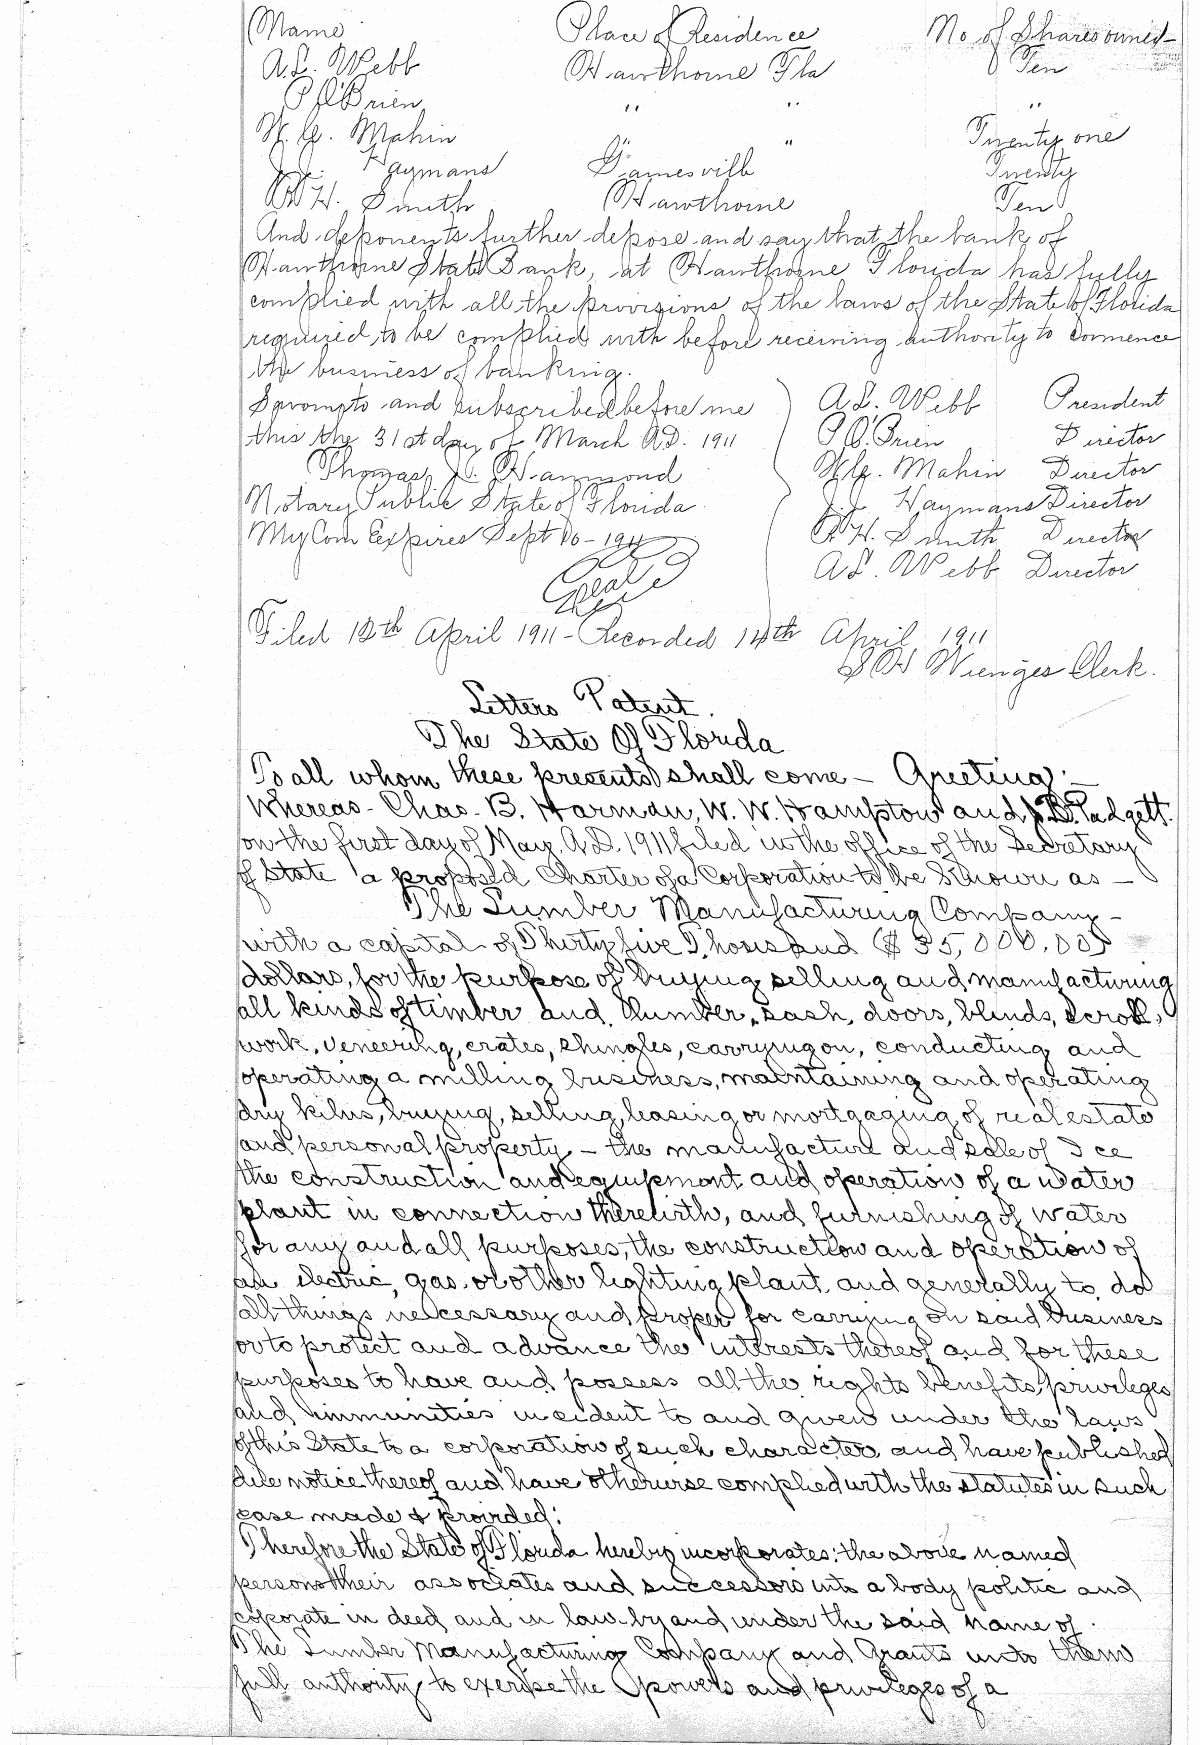 Name Place of Residence No of Shares owned
A.L. Webb Hawthorne Fla Ten
P J O'Brien " " "
W. G. Mahin " " Twenty one
J.J. Haymans Gainesville Twenty
R H. Smith Hawthorne Ten
And deponents further depose and say that the bank of
Hawthorne State Bank, at Hawthorne Florida has fully
complied with all the provisions of the laws of the State of Florida
required to be complied with before receiving authority to commence
the business of banking.
Sworn to and subscribed before me A.L. Webb President
this the 31st day of March A.D. 1911 P O'Brien Director
Thomas J. Hammond W.G. Mahin Director
Notary Public State of Florida J.J. Haymans Director
My Com Expires Sept 10-1911 R.H. Smith Director
Seal A L. Webb Director
Filed 12th April 1911 - Recorded 14th April 1911
S H Wienges Clerk.
Letters Patent.
The State Of Florida
To all whom these presents shall come - Greeting: -
Whereas - Chas. B. Harman, W. W. Hampton and J.B. Padgett.
on the first day of May, A.D. 1911 filed in the office of the Secretary
of State a proposed Charter of a Corporation to be known as -
The Lumber Manufacturing Company -
with a capital of Thirty five Thousand ($35,000.00)
dollars, for the purpose of buying selling and manufacturing
all kinds of timber and lumber, sash, doors, blinds, scroll,
work, veneering, crates, shingles, carrying on, conducting and
operating a milling business, maintaining and operating
dry kilns, buying, selling, leasing or mortgaging of real estate
and personal property - the manufacture and sale of Ice
the construction and equipment and operation of a water
plant in connection therewith, and furnishing of water
for any and all purposes, the construction and operation of
an electric, gas or other lighting plant, and generally to do
all things necessary and proper for carrying on said business
or to protect and advance the interests thereof and for these
purposes to have and possess all the rights benefits, privileges
and immunities incident to and given under the laws
of this State to a corporation of such character, and have published
due notice thereof and have otherwise complied with the statutes in such
case made & provided:
Therefore the State of Florida hereby incorporates: the above named
persons their associates and successors into a body politic and
coporate in deed and in law by and under the said name of
The Lumber Manufacturing Company and Grants unto them
full authority to exercise the powers and privileges of a